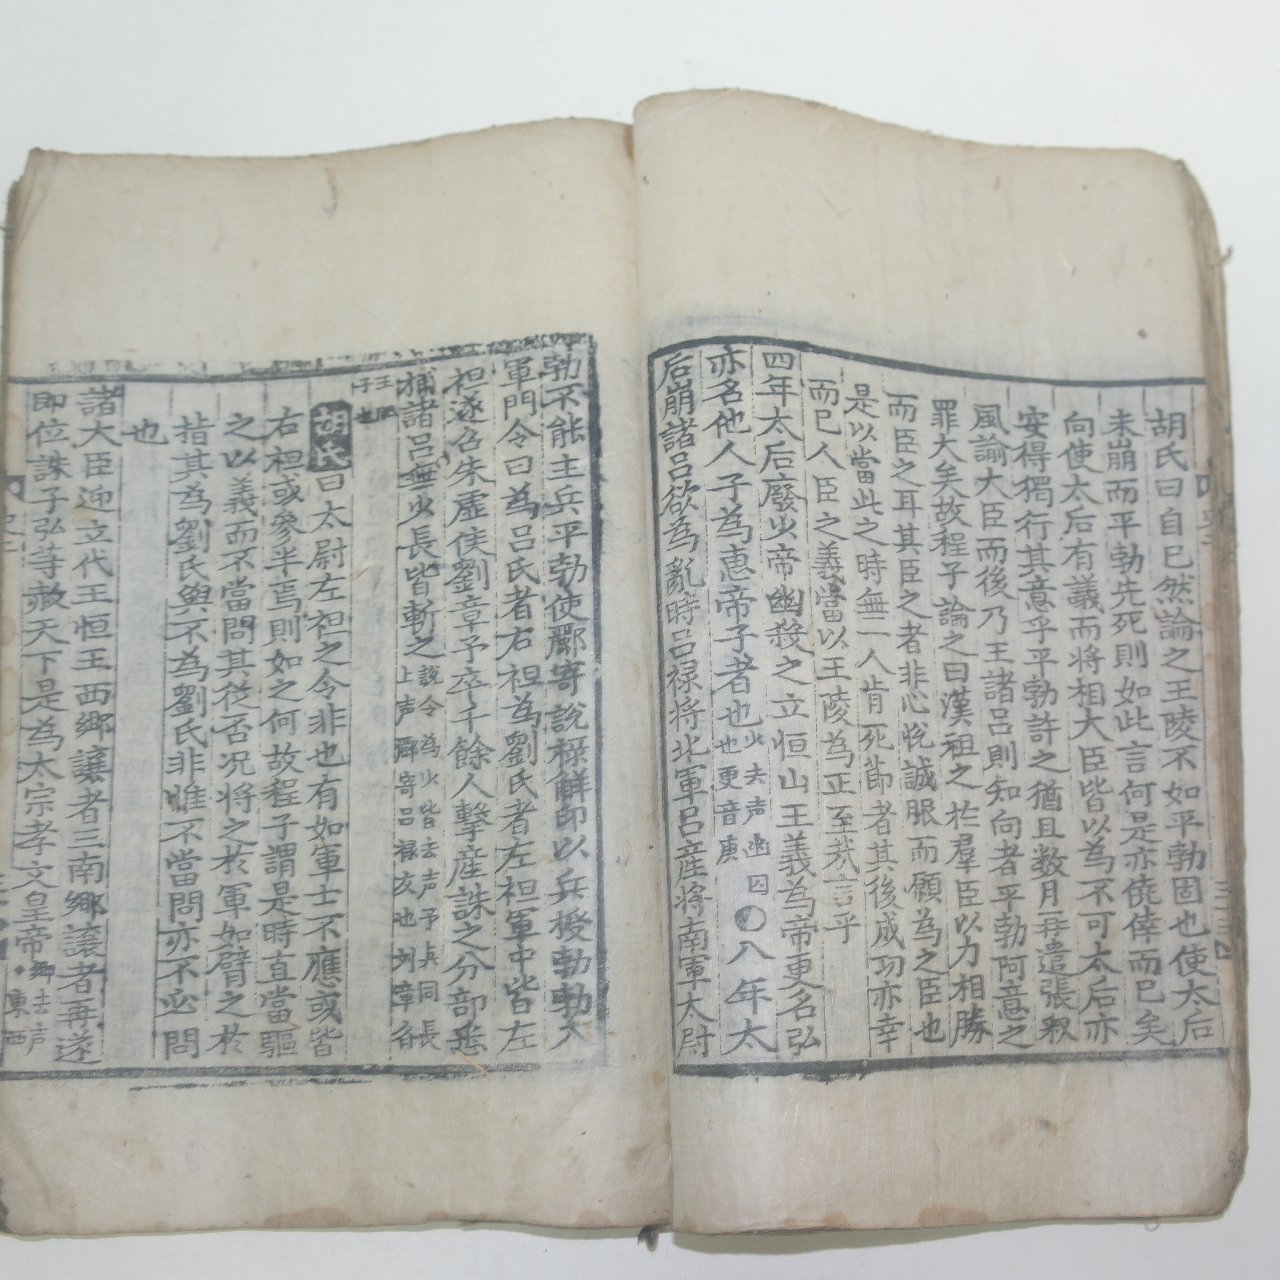 胡氏曰自已然論之王陵不如平勃固也使太后
未崩而平勃先死則如此言何是亦僥倖而已矣
向使太后有議而將相大臣皆以為不可太后亦
安得獨行其意乎平勃許之猶且数月再遣張釈
風諭大臣而後乃王諸呂則知向者平勃阿意之
罪大矣故程子論之曰漢祖之於羣臣以力相勝
而臣之耳其臣之者非心悅誠服而願為之臣也
是以當此之時無一人肯死節者其後成功亦幸
而已人臣之義當以王陵為正至哉言乎
四年太后廢少帝幽殺之立恒山王義為帝更名弘
亦名他人子為惠帝子者也少去声幽囚也更音庚○八年太
后崩諸呂欲為亂時呂禄將北軍呂産將南軍太尉
勃不能主兵平勃使酈寄説禄解印以兵授勃勃入
軍門令曰為呂氏者右袒為劉氏者左袒軍中皆左
袒遂召朱虚侯劉章予卒千餘人擊産誅之分部悉
捕諸呂無少長皆斬之説令為少皆去声予与同長上声酈寄呂禄友也刘章各
王肥子也
胡氏曰太尉左袒之令非也有如軍士不應或皆
右袒或參半焉則如之何故程子謂是時直當驅
之以義而不當問其從否况將之於軍如臂之於
指其為劉氏與不為劉氏非惟不當問亦不必問
也
諸大臣迎立代王恒王西鄉讓者三南鄉讓者再遂
即位誅子弘等赦天下是為太宗孝文皇帝鄉去声東西